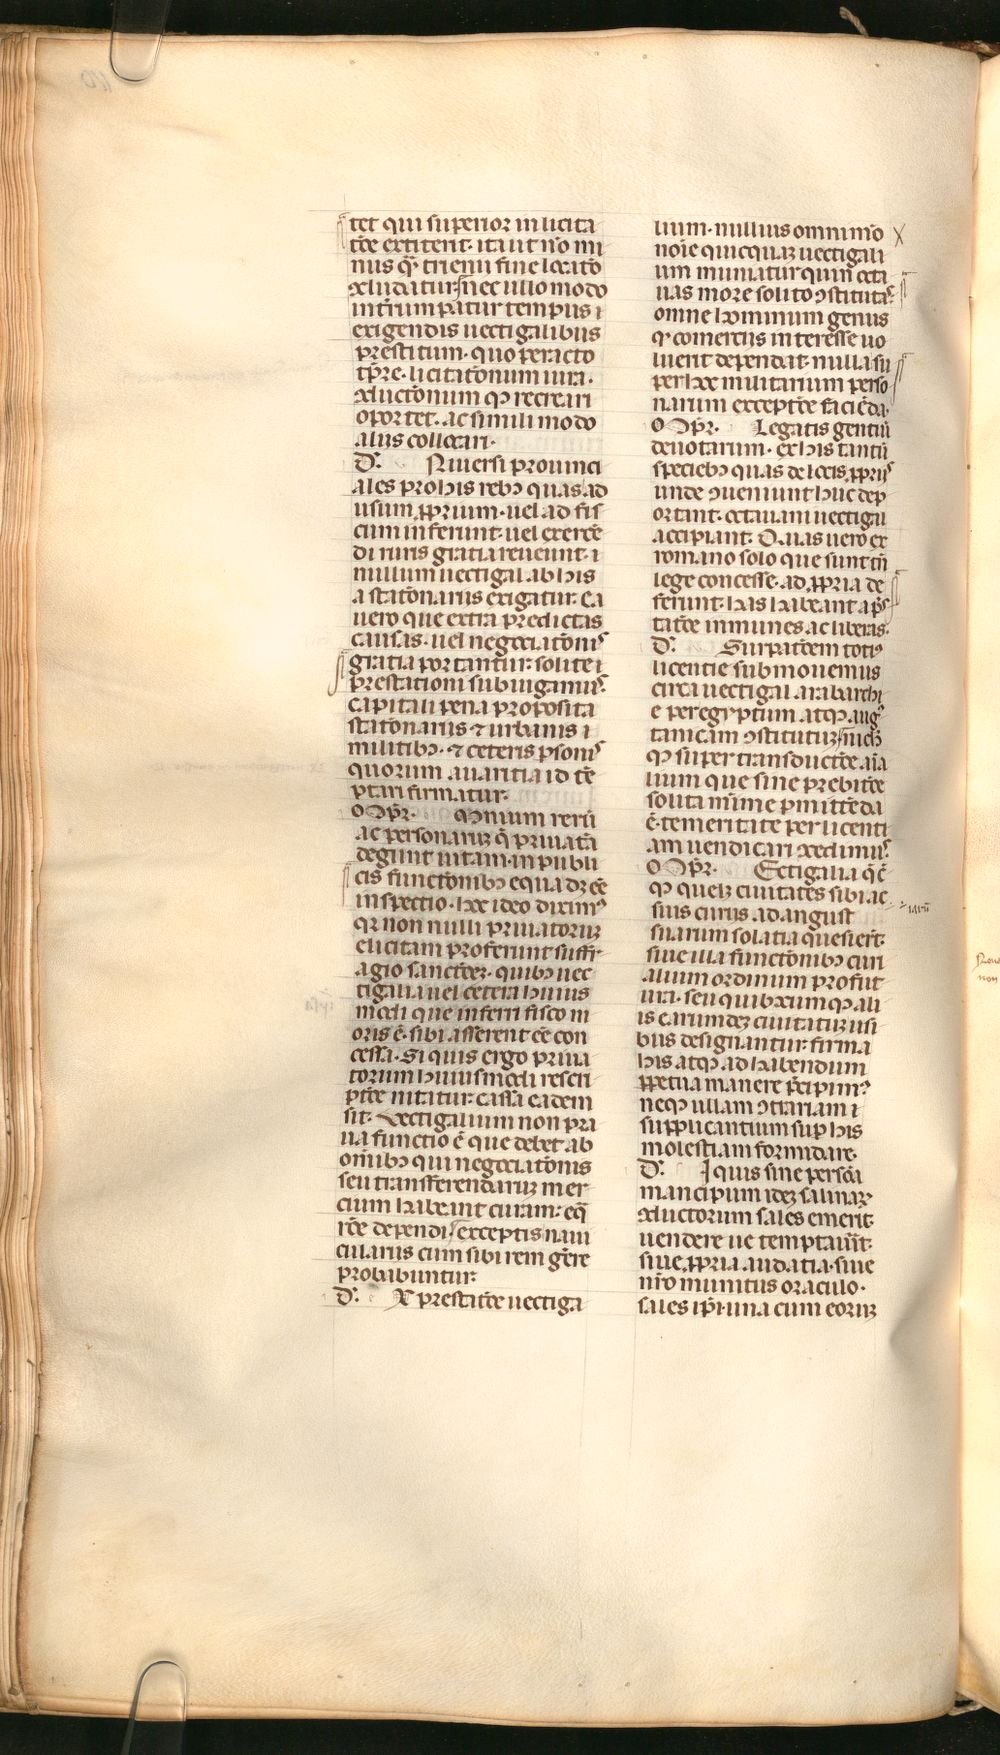 tet qui superior in licita
tōe extiterit· ita ut nō mi
nus q̄ trienni fine locatō
cludatur nec ullo modo
intrumpatur tempus i
exigendis uectigalibus
prestitum· quo peracto
tp̄re· licitatonum iura·
cluctonum qꝫ recreari
oportet· ac simili modo
alus collocari·
D.' Niuersi prouinci
ales pro his rebꝫ quas ad
usum ꝓprium· uel ad fis
cum inferunt· uel exercē
di ruris gratia reueunt· i
nullum uectigal ab his
a statonariis exigatur· Ea
uero que extra predictas
causas· uel negociatonis
gratia portantur· solite i
prestationi subiugamus·
capitali pena proposita
statonariis ⁊ urbanis i
militibꝫ· ⁊ ceteris ꝑsonis
quorum auaritia id tē
ptari firmatur·
O Op̄r· Omnium rerū
ac personarꝫ q̄ priuatā
degunt uitam· in publi
cis functonibꝫ equa dꝫ eē
inspectio· hoc ideo diximꝰ
qꝛ non nulli priuatorꝫ
elicitam proferunt suffr
agio sanctoeꝫ· quibꝫ uec
tigalia uel cetera huius
modi que inferri fisco m
oris ē· sibi asserent eē con
cessa· Si quis ergo priua
torum huiusmodi rescri
ptōe nitatur· cassa eadem
sit· Vectigalium non par
ua functio ē que debet ab
omībꝫ qui negociatonis
seu transferendarꝫ mer
cium habeant curam· eq̄
rōe dependi exceptis naui
culariis cum sibi rem ge̅re
probabuntur·
D.' X prestatōe uectiga
lium· nullius omnimō
noīe quicquaꝫ uectigali
um minuatur quin octa
uas more solito ꝯstitutas
omne hominum genus
qꝫ comerciis interesse uo
luerit dependat· nulla su
per hoc militarium perso
narum exceptōe faciēda·
O Op̄r· Legatis gentiū
deuotarum· ex his tantū
speciebꝫ quas de locis ꝓpriis
unde ꝯueniunt huc dep
ortant· octauam uectigali
accipiant· Quas uero ex
romano solo que sunt tn̄
lege concesse· ad ꝓpria de
ferunt· has habeant a p̄s
tatōe inmunes ac liberas·
D.' Surpatōem totiꝰ
licentie submouemus
circa uectigal arabarchi
e per egyptum atqꝫ aug
tanicam ꝯstitutꝫ nichil
qꝫ super transductōe aīa
lium que sine prebitōe
solita mīme ꝑmittēda
ē· temeritate per licenti
am uendicari ꝯcedimus·
O Op̄r· Ectigalia q̄ cē
qꝫ queliꝫ ciuitates sibi ac
suis curiis ad angust
suarum solatia quesierit·
siue illa functonibꝫ curi
alium ordinum profut
ura· seu quibꝫcumqꝫ ali
is earumdeꝫ ciuitatꝫ usi
bus designantur firma
his atqꝫ ad habendum
ꝑpetua manere p̄cipimꝰ
neqꝫ ullam ꝯtrariam i
supplicantium suꝑ his
molestiam formidare·
D.' I quis sine persōa
mancipum ideꝫ salinaꝝ
cluctorum sales emerit·
uendere ue temptauīt·
siue ꝓpria audatia· siue
nrō munitus oraculo·
sales ipī· una cum eorꝫ